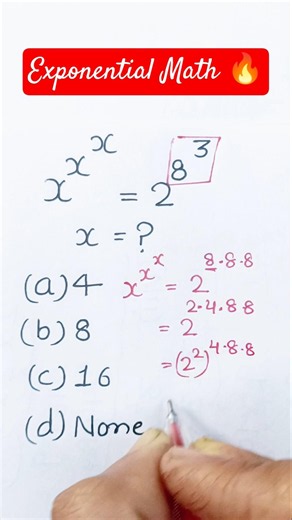 Exponential Math 🔥
x^x^x = 2^8^3
x = ?
(a) 4
(b) 8
(c) 16
(d) None
x^x^x = 2^8·8·8
= 2^2·4·8·8
= (2^2)^4·8·8